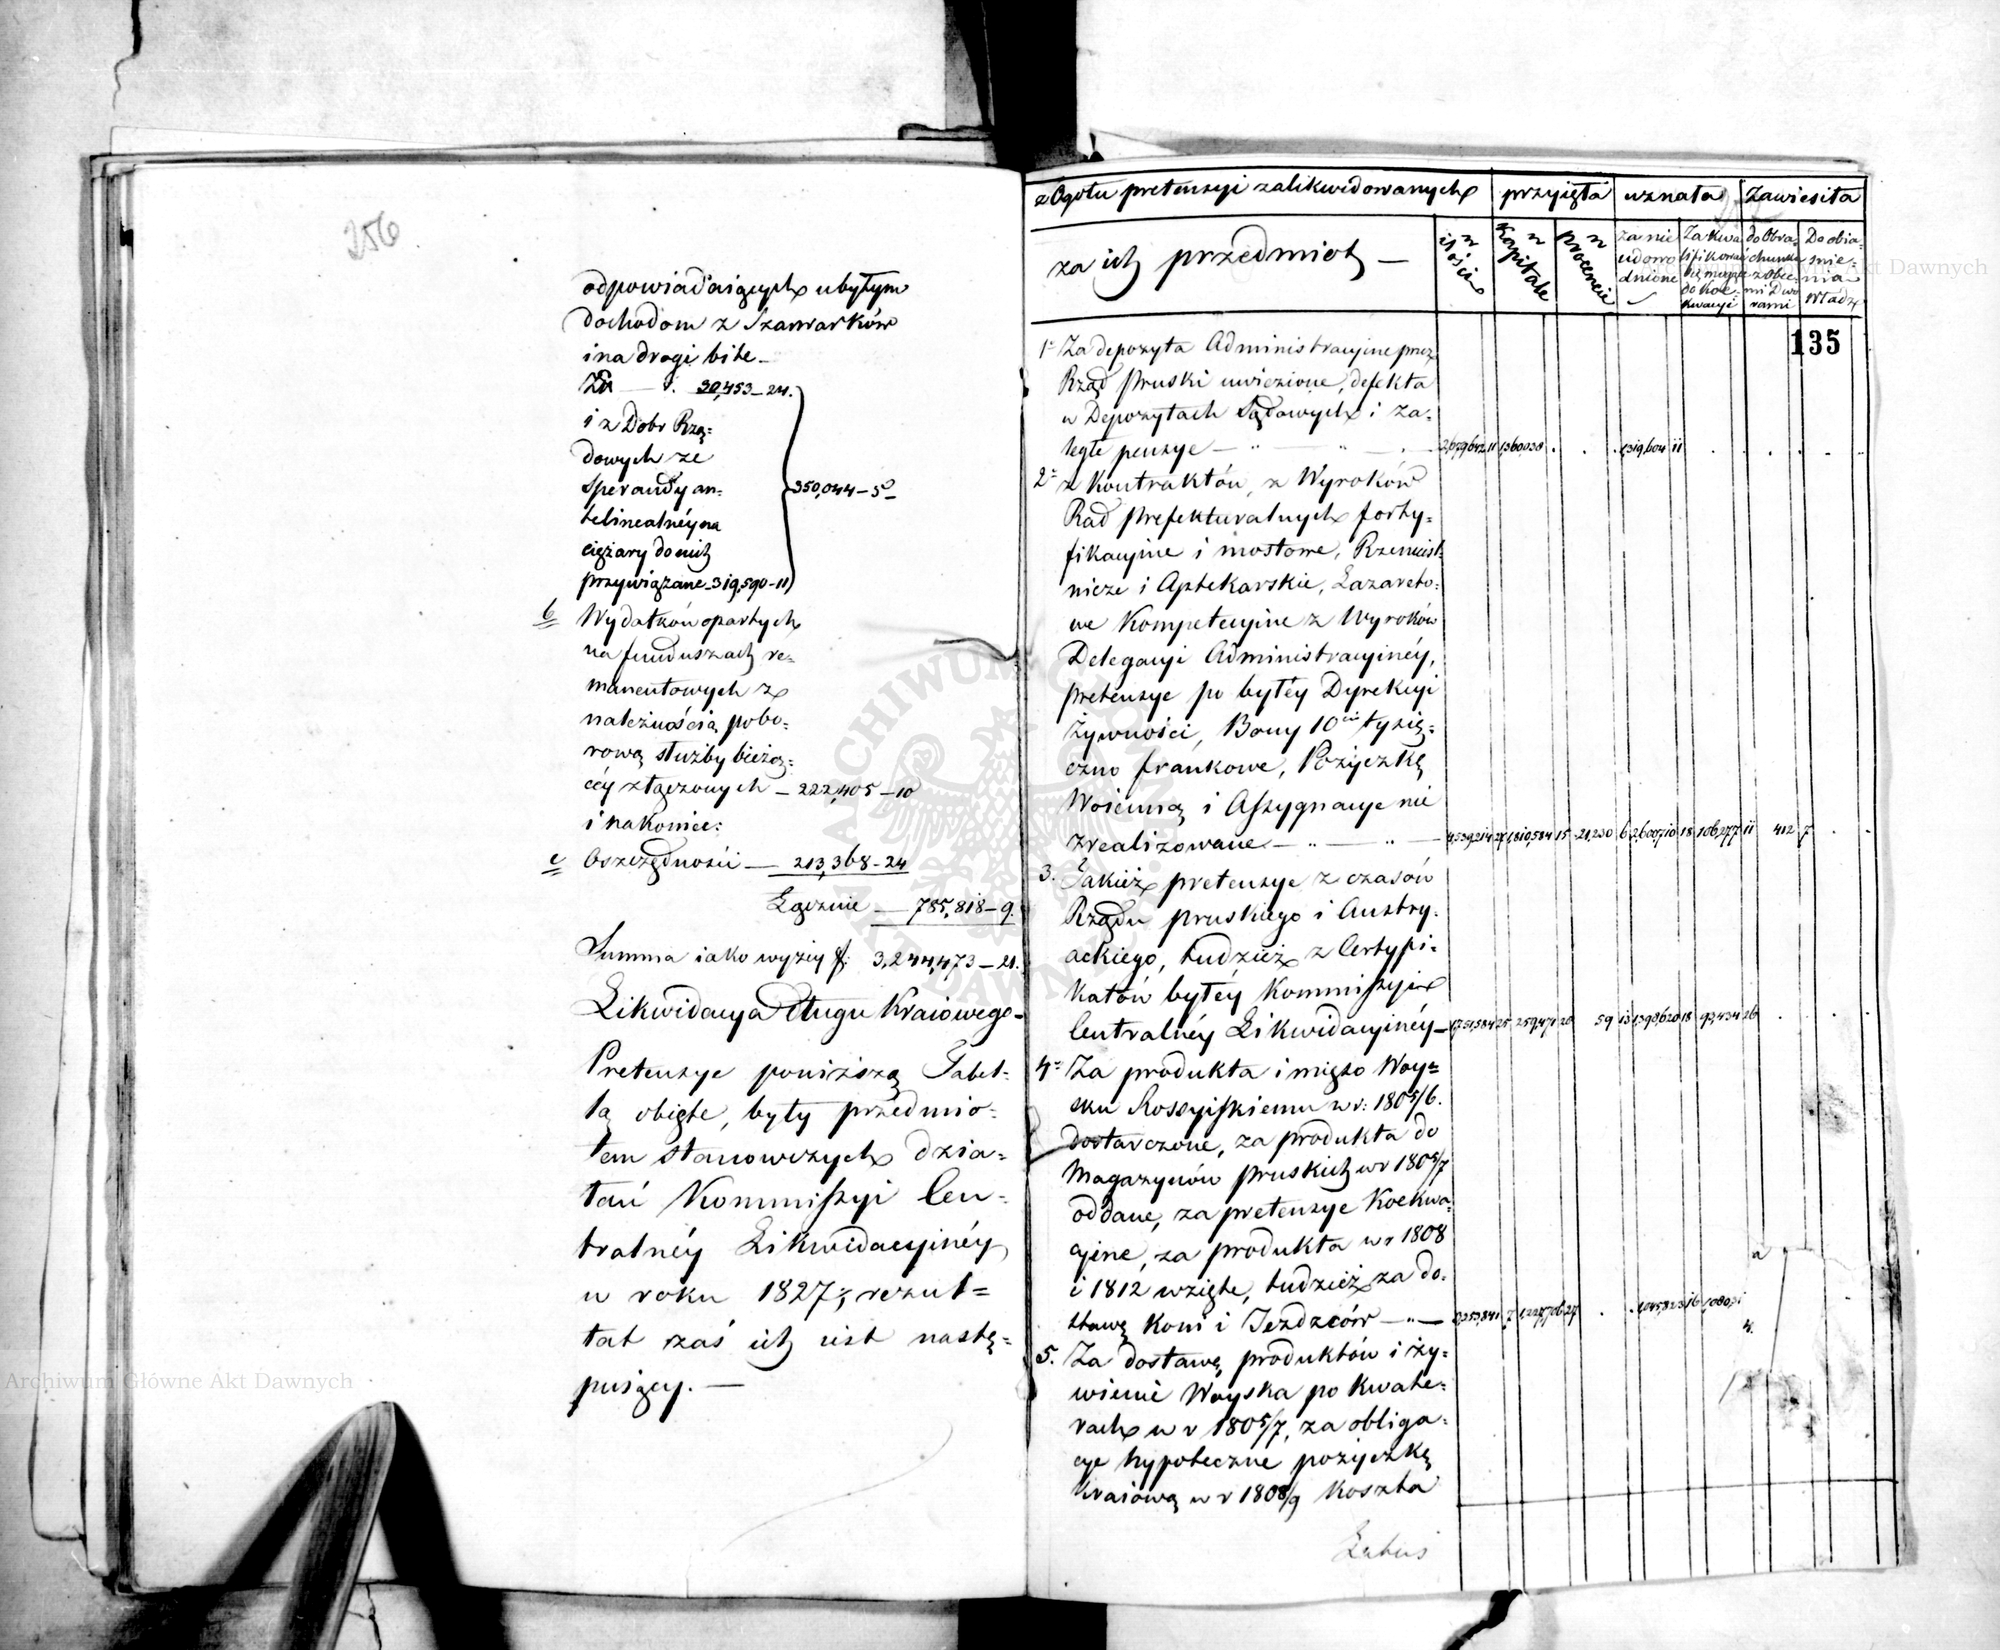 256
odpowiadaiących ubyłym
dochodom z Szarwarków
i na drogi bite —
Zł — 30,453 — 24.
i z Dobr Rzą=
dowych ze
Sperandy an=
telinealnéy na
ciężary do nich
przywiązane 319,590 — 11
350,044 — 5
b Wydatków opartych
na funduszach re=
manentowych z
należnością pobo=
rową służby bieżą=
céy złączonych — 222,405 — 10
i nakoniec:
c Oszczędności — 213,368 — 24
Łącznie — 785,818 — 9.
Summa iako wyżey f: 3,244,473 — 21.
Likwidacya Długu Kraiowego —
Pretensye poniższą Tabel=
lą obięte, były przedmio=
tem stanowczych dzia=
łań Kommissyi Cen=
tralnéy Likwidacyinéy
w roku 1827; rezul=
tat zaś ich iest nastę=
puiący. —
z Ogołu pretensyi zalikwidowanych przyięła uznała Zawiesiła
za ich przedmiot — w ilości w Kapitale w procencie za nie udowodnione Za kwalifikowane do Obrachunku z Obcemi Dworami Do obiaśnienia Władz
135
1= Za depozyta Administracyine przez
Rząd Pruski uwiezione, defekta
w Depozytach Sądowych i za=
ległe pensye — 2,679,642 11 1,360,038 1,319,604 11
2= z Kontraktów, z Wyroków
Rad Prefekturalnych forty=
fikacyine i mostowe, Rzemieśl=
nicze i Aptekarskie, Lazareto=
we Kompetencyine z Wyroków
Delegacyi Administracyinéy,
pretensye po byłéy Dyrekcyi
Żywności, Bony 10cio tysią=
czno frankowe, Pożyczkę
Woienną i Assygnacye nie
zrealizowane — 4,539,214 27 1,810,584 15 21,230 6 2,600,710 18 106,277 11 412 7
3. Takież pretensye z czasów
Rządu pruskiego i Austry=
ackiego, tudzież z Certyfi=
katów byłéy Kommissyi
Centralnéy Likwidacyinéy — 1,751,584 25 259,471 20 59 13 1,398,620 18 93,434 26
4= Za produkta i mięso Woy=
sku Rossyiskiemu w r: 1805/6.
dostarczone, za produkta do
Magazynów pruskich w r 1806/7
oddane, za pretensye Koekwa=
cyine, za produkta w r 1808
i 1812 wzięte, tudzież za do=
stawę Koni i Jezdzców —
5. Za dostawę produktów i ży=
wienie Woyska po kwate=
rach w r 1806/7, za obliga=
cye hypoteczne pożyczkę
kraiową w r 1808/9 Koszta
Latus
ARCHIWUM GŁÓWNE AKT DAWNYCH
Archiwum Główne Akt Dawnych
Archiwum Główne Akt Dawnych